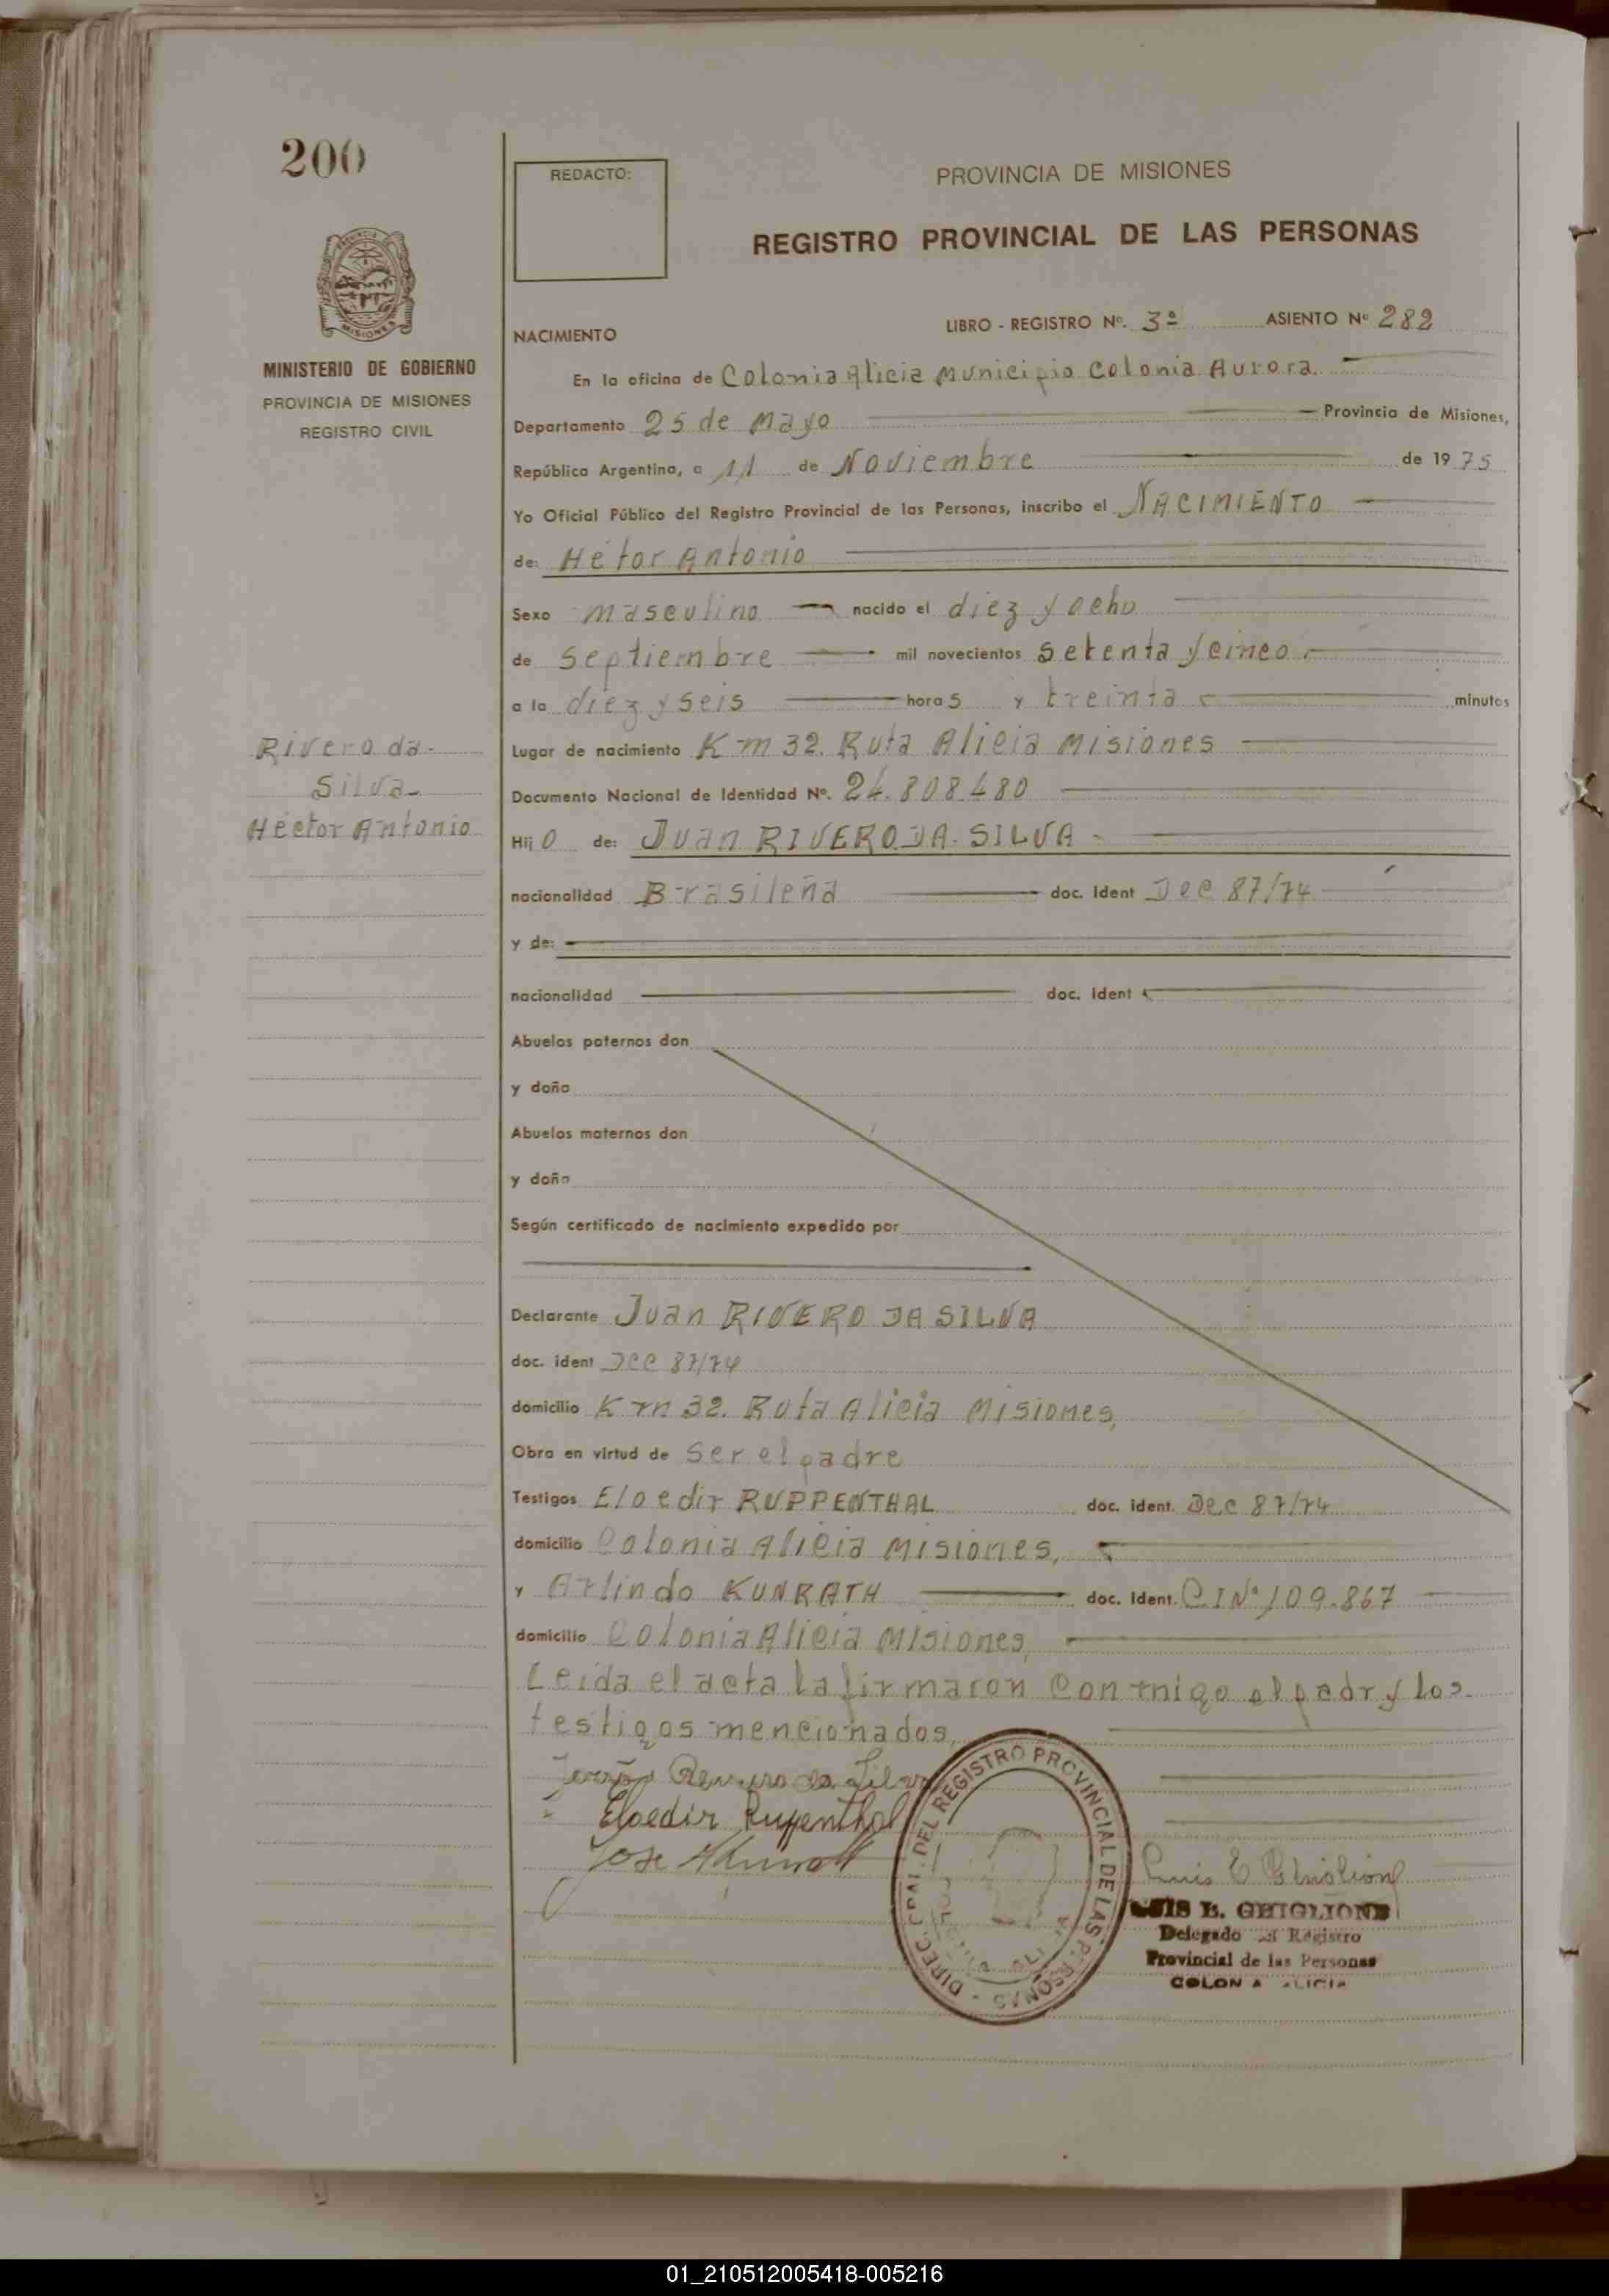 200
REDACTO:
PROVINCIA DE MISIONES
REGISTRO PROVINCIAL DE LAS PERSONAS
MISIONES
MINISTERIO DE GOBIERNO
PROVINCIA DE MISIONES
REGISTRO CIVIL
NACIMIENTO
LIBRO - REGISTRO Nº. 3º ASIENTO Nº 282
En la oficina de Colonia Alicia Municipio Colonia Aurora.
Departamento 25 de Mayo Provincia de Misiones,
República Argentina, a 11 de Noviembre de 1975
Yo Oficial Público del Registro Provincial de las Personas, inscribo el NACIMIENTO
de: Hétor Antonio
Sexo masculino nacido el diez y ocho
de Septiembre mil novecientos setenta y cinco.
a la diez y seis horas y treinta minutos
Lugar de nacimiento Km 32. Ruta Alicia Misiones
Documento Nacional de Identidad Nº. 24.808.480
Rivero da-
Silva-
Héctor Antonio
Hijo de: Juan RIVERO DA-SILVA-
nacionalidad Brasileña doc. ident Dec 87/74
y de:
nacionalidad doc. ident
Abuelos paternos don
y doña
Abuelos maternos don
y doña
Según certificado de nacimiento expedido por
Declarante Juan RIVERO DA SILVA
doc. ident Dec 87/74
domicilio Km 32. Ruta Alicia Misiones,
Obra en virtud de Ser el padre
Testigos Eloedir RUPPENTHAL doc. ident. Dec 87/74
domicilio Colonia Alicia Misiones,
y Arlindo KUNRATH doc. ident. CI Nº 109.867
domicilio Colonia Alicia Misiones,
Leida el acta la firmaron conmigo el padr y los
testigos mencionados,
da Silva
Eloedir Ruppenthal
Jose
DIREC. GRAL. DEL REGISTRO PROVINCIAL DE LAS PERSONAS -
Luis E Ghiglione
LUIS E. GHIGLIONE
Delegado del Registro
Provincial de las Personas
COLONIA ALICIA
01_210512005418-005216